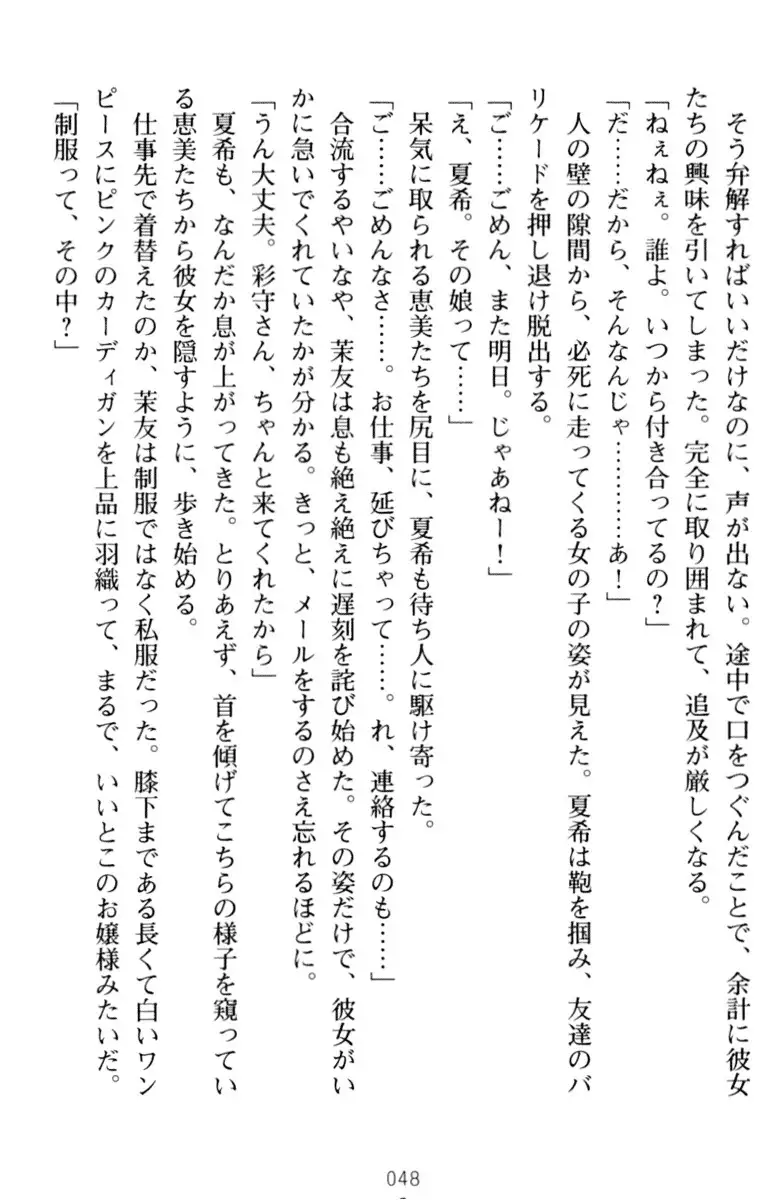 そう弁解すればいいだけなのに、声が出ない。途中で口をつぐんだことで、余計に彼女
たちの興味を引いてしまった。完全に取り囲まれて、追及が厳しくなる。
「ねぇねぇ。誰よ。いつから付き合ってるの？」
「だ……だから、そんなんじゃ…………あ！」
　人の壁の隙間から、必死に走ってくる女の子の姿が見えた。夏希は鞄を掴み、友達のバ
リケードを押し退け脱出する。
「ご……ごめん、また明日。じゃあねー！」
「え、夏希。その娘って……」
　呆気に取られる恵美たちを尻目に、夏希も待ち人に駆け寄った。
「ご……ごめんなさ……。お仕事、延びちゃって……。れ、連絡するのも……」
　合流するやいなや、茉友は息も絶え絶えに遅刻を詫び始めた。その姿だけで、彼女がい
かに急いでくれていたかが分かる。きっと、メールをするのさえ忘れるほどに。
「うん大丈夫。彩守さん、ちゃんと来てくれたから」
　夏希も、なんだか息が上がってきた。とりあえず、首を傾げてこちらの様子を窺ってい
る恵美たちから彼女を隠すように、歩き始める。
　仕事先で着替えたのか、茉友は制服ではなく私服だった。膝下まである長くて白いワン
ピースにピンクのカーディガンを上品に羽織って、まるで、いいとこのお嬢様みたいだ。
「制服って、その中？」
048